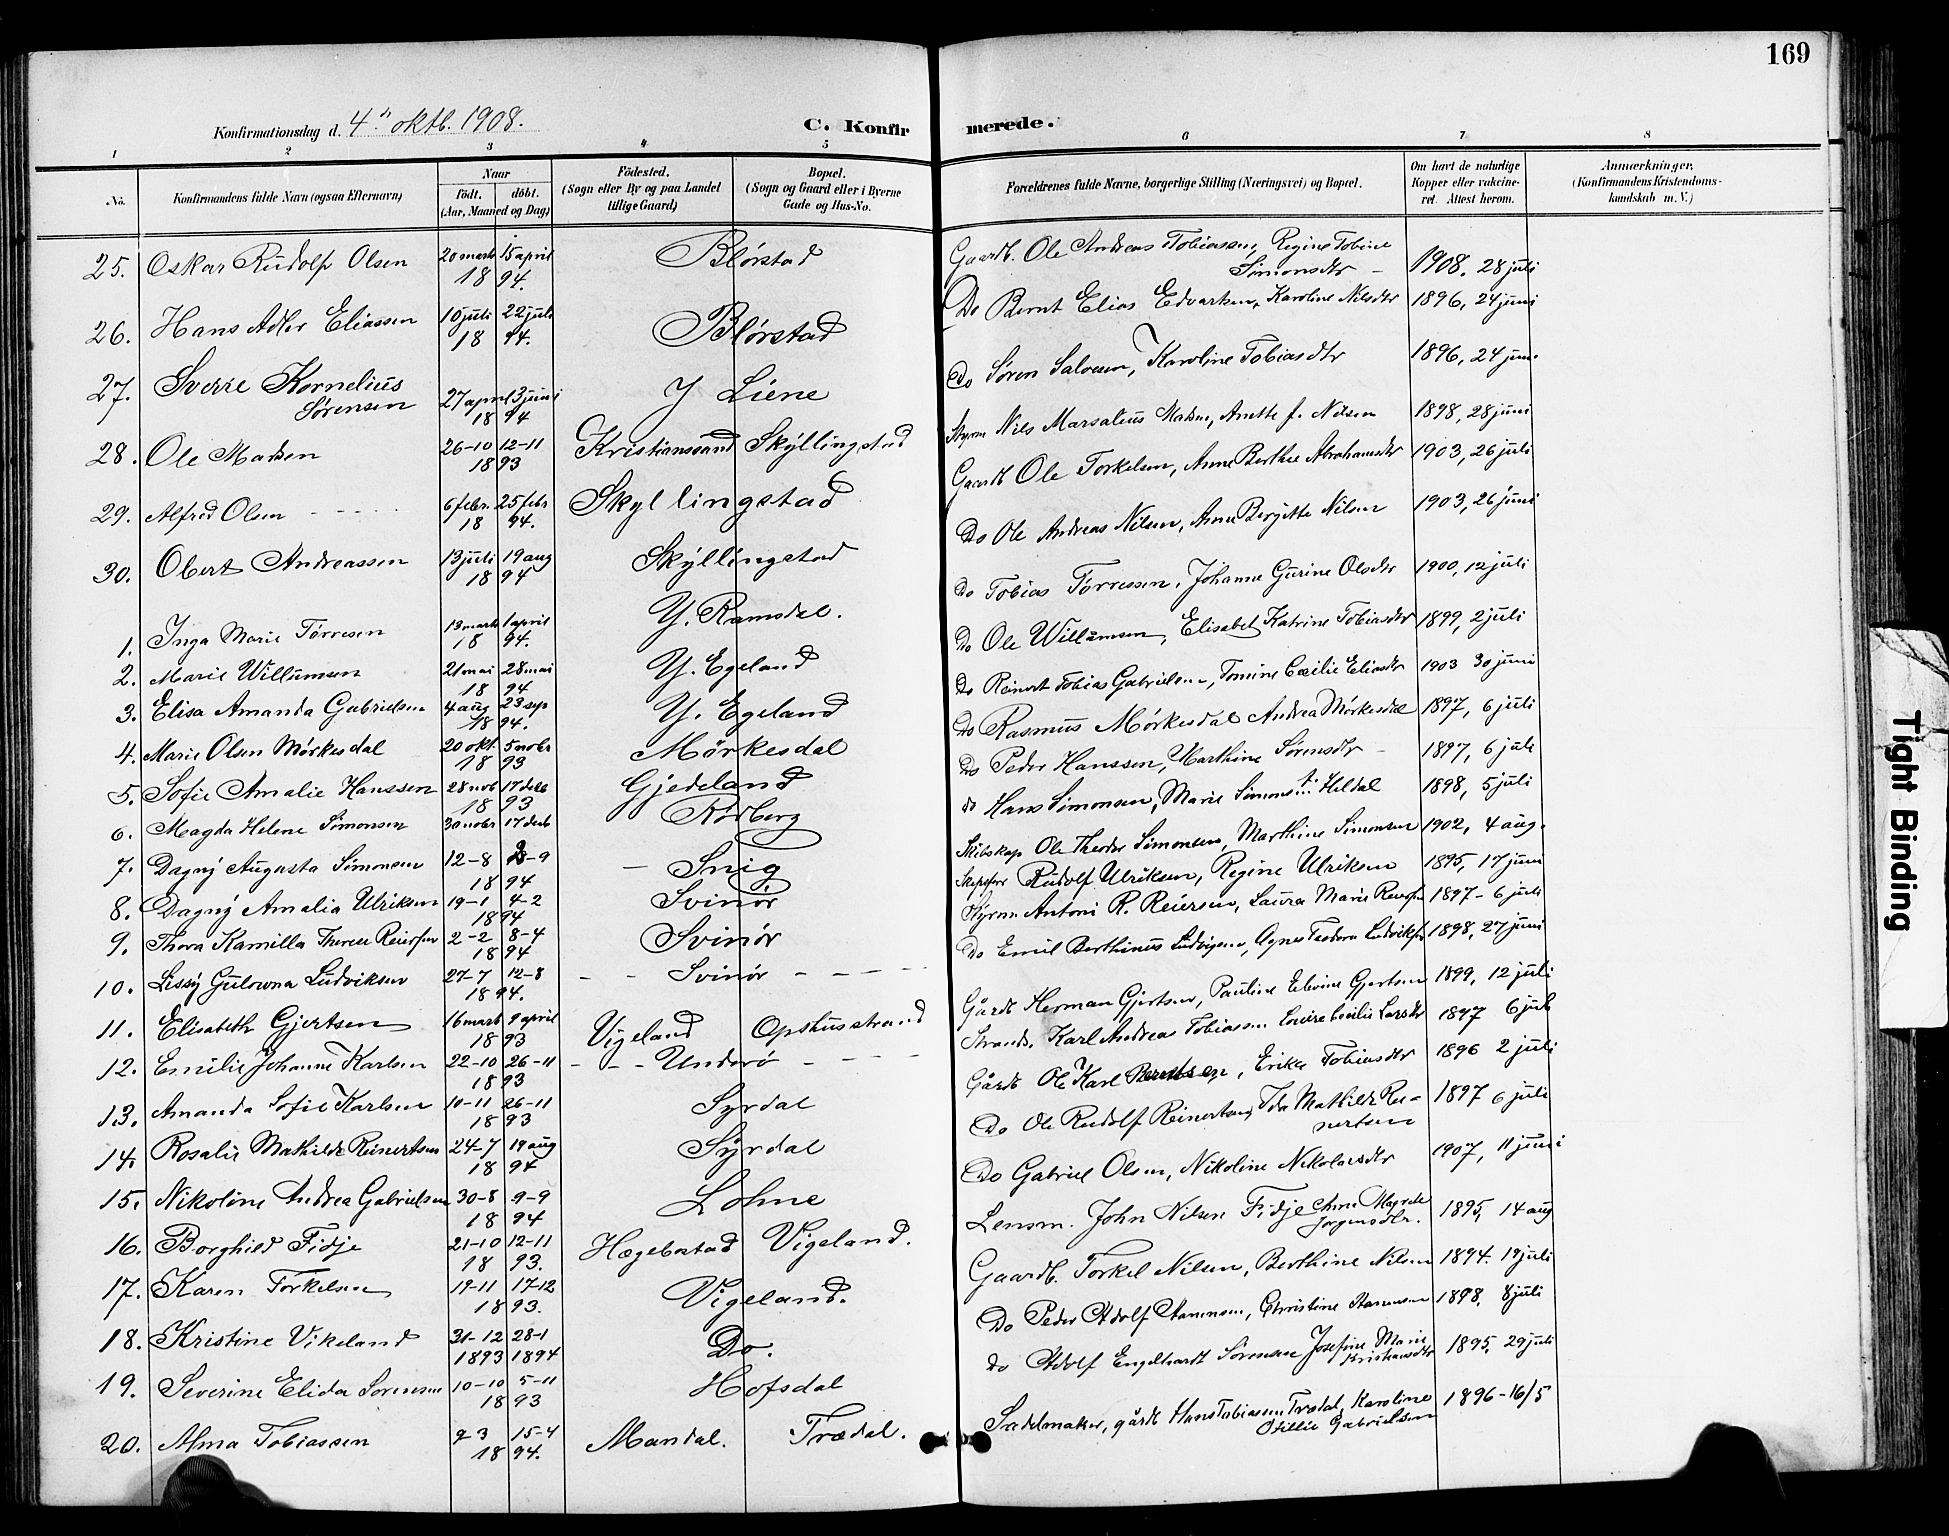 169
Konfirmationsdag d. 4de oktb. 1908. C. Konfirmerede.
1 2 3 4 5 6 7 8
No. Konfirmandens fulde Navn (ogsaa Efternavn) Naar født, døbt. (Aar, Maaned og Dag) Fødested. (Sogn eller By og paa Landet tillige Gaard) Bopæl. (Sogn og Gaard eller i Byerne Gade og Hus-No. Forældrenes fulde Navne, borgerlige Stilling (Næringsvei) og Bopæl. Om havt de naturlige Kopper eller vakcineret. Attest herom. Anmærkninger, (Konfirmandens Kristendomskundskab m. V.)
25. Oskar Rudolf Olsen 20 marts 15 april 1894. Blørstad Gaardb. Ole Andreas Tobiassen, Regine Tobine Simonsdtr - 1908. 28 juli
26. Hans Adler Eliassen 10 juli 22 juli 1894. Blørstad Do Bernt Elias Edvartsen, Karoline Nilsdtr 1896, 24 juni
27. Sverre Kornelius Sørensen 27 april 13 juni 1894 Y Liene Do Søren Salvesen, Karoline Tobiasdtr 1896, 24 juni
28. Ole Madsen 26-10 12-11 1893 Kristianssand Skyllingstad Styrm Nils Marsalius Madsen, Anette f. Nilsen 1898, 28 juni
29. Alfred Olsen 6 febr. 25 febr 1894. Skyllingstad Gaardb Ole Torkelsen, Anne Berthe Abrahamsdtr 1903, 26 juli
30. Obert Andreassen 13 juli 19 aug 1894 Skyllingstad Do Ole Andreas Nilsen, Anne Bergitte Nilsen 1903, 26 juni
1. Inga Marie Tørresen 13 marts 1 april 1894. Y. Ramsdal. Do Tobias Tørressen, Johanne Gurine Olsdtr 1900, 12 juli
2. Marie Willumsen 21 mai 28 mai 1894 Y. Egeland Do Ole Willumsen, Elisabet Katrine Tobiasdtr 1899, 2 juli
3. Elisa Amanda Gabrielsen 4 aug 23 sep 1894. Y. Egeland Do Reinert Tobias Gabrielsen, Tomine Cecilie Eliasdtr 1903 30 juni
4. Marie Olsen Mørkesdal 20 okt. 5 nobr 1893 Mørkesdal Do Rasmus Mørkesdal Andrea Mørkesdal 1897, 6 juli
5. Sofie Amalie Hanssen 28 nob 17 deb 1893 Gjedeland Do Peder Hanssen, Marthine Sørensdtr - 1897, 6 juli
6. Magda Helene Simonsen 30 nobr 17 deb Rødberg do Hans Simonsen, Marie Simonsdtr Heldal 1898, 5 juli
7. Dagny Augasta Simonsen 12-8 2-9 1894 - Snig Skibskap Ole Theodor Simonsen, Marthine Simonsen 1902, 4 aug.
8. Dagny Amalia Ulriksen 19-1 4-2 1894 Svinør Skipsfør Rudolf Ulriksen, Regine Ulriksen 1895, 17 juni
9. Thora Kamilla Therese Reiersen 2-2 8-4 1894 Svinør Styrm Antoni R. Reiersen, Laura Marie Reiersen 1897 - 6 juli
10. Lissy Gulowna Ludviksen 27-7 12-8 1894. - - Svinør - - - - Do Emil Berthinus Ludvigsen, Agnes Teodora Ludviksen 1898, 27 juni
11. Elisabeth Gjertsen 16 marts 9 april 1893 Vigeland Opshusstrand Gårdb Herman Gjertsen, Pauline Elevine Gjertsen 1899, 12 juli
12. Emilie Johanne Karlsen 22-10 26-11 1893 - - - Underø - - - - Strands. Karl Andreas Tobiassen Lovise Cecilie Larsdtr 1897 6 juli
13. Amanda Sofie Karlsen 10-11 26-11 1893 Syrdal Gårdb Ole Karl Berntsen, Erikke Tobiasdtr 1896 2 juli
14. Rosalie Mathilde Reinertsen 24-7 19 aug 1894 Syrdal Do Ole Rudolf Reinertsen, Ida Mathilde Reinertsen 1897 6 juli
15. Nikoline Andrea Gabrielsen 30-8 9-9 1894 Lohne Do Gabriel Olsen, Nikoline Nikolaisdtr 1907, 11 juni
16. Borghild Fidje 21-10 12-11 1893. Hægebostad Vigeland. Lensm. John Nilsen Fidje Anne Magrete Jørgensdtr. 1895, 14 aug
17. Karen Torkelsen 19-11 17-12 1893. Vigeland. Gaardb. Torkel Nilsen, Berthine Nilsen 1894. 19 juli
18. Kristine Vikeland 31-12 28-1 1893 1894 Do. Do Peder Adolf Stamnsen, Christine Stamnsen 1898, 8 juli
19. Severine Elida Sørensen 10-10 5-11 1893 Hofsdal Do Adolf Engelhardt Sørensen Josefine Marie Kristiansdtr 1895, 29 juli
20. Alma Tobiassen 9-3 15-4 1894. Mandal. Trædal. Sadelmaker, gårdb Hans Tobiassen Trædal, Karoline Otillie Gabrielsen 1896-16/5
Tight Binding